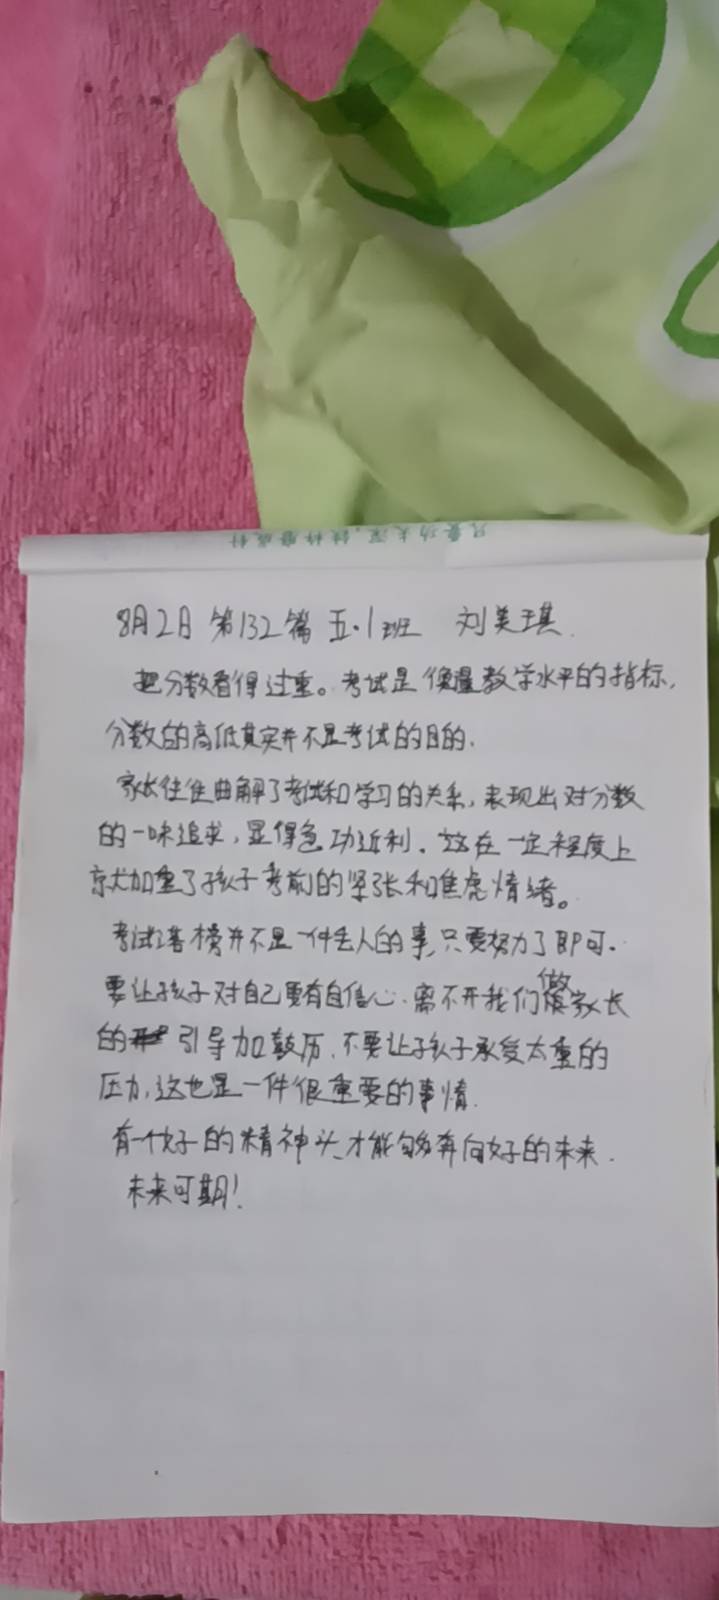 只要功夫深,铁杵磨成针
8月2日 第132篇 五·1班 刘美琪.
把分数看得过重。考试是衡量教学水平的指标,
分数的高低其实并不是考试的目的.
家长往往曲解了考试和学习的关系,表现出对分数
的一味追求,显得急功近利.这在一定程度上
就加重了孩子考前的紧张和焦虑情绪。
考试落榜并不是一件丢人的事,只要努力了即可.
要让孩子对自己更有自信心.离不开我们做家长
的 引导加鼓历.不要让孩子承受太重的
压力,这也是一件很重要的事情.
有一个好的精神头,才能够奔向好的未来.
未来可期!